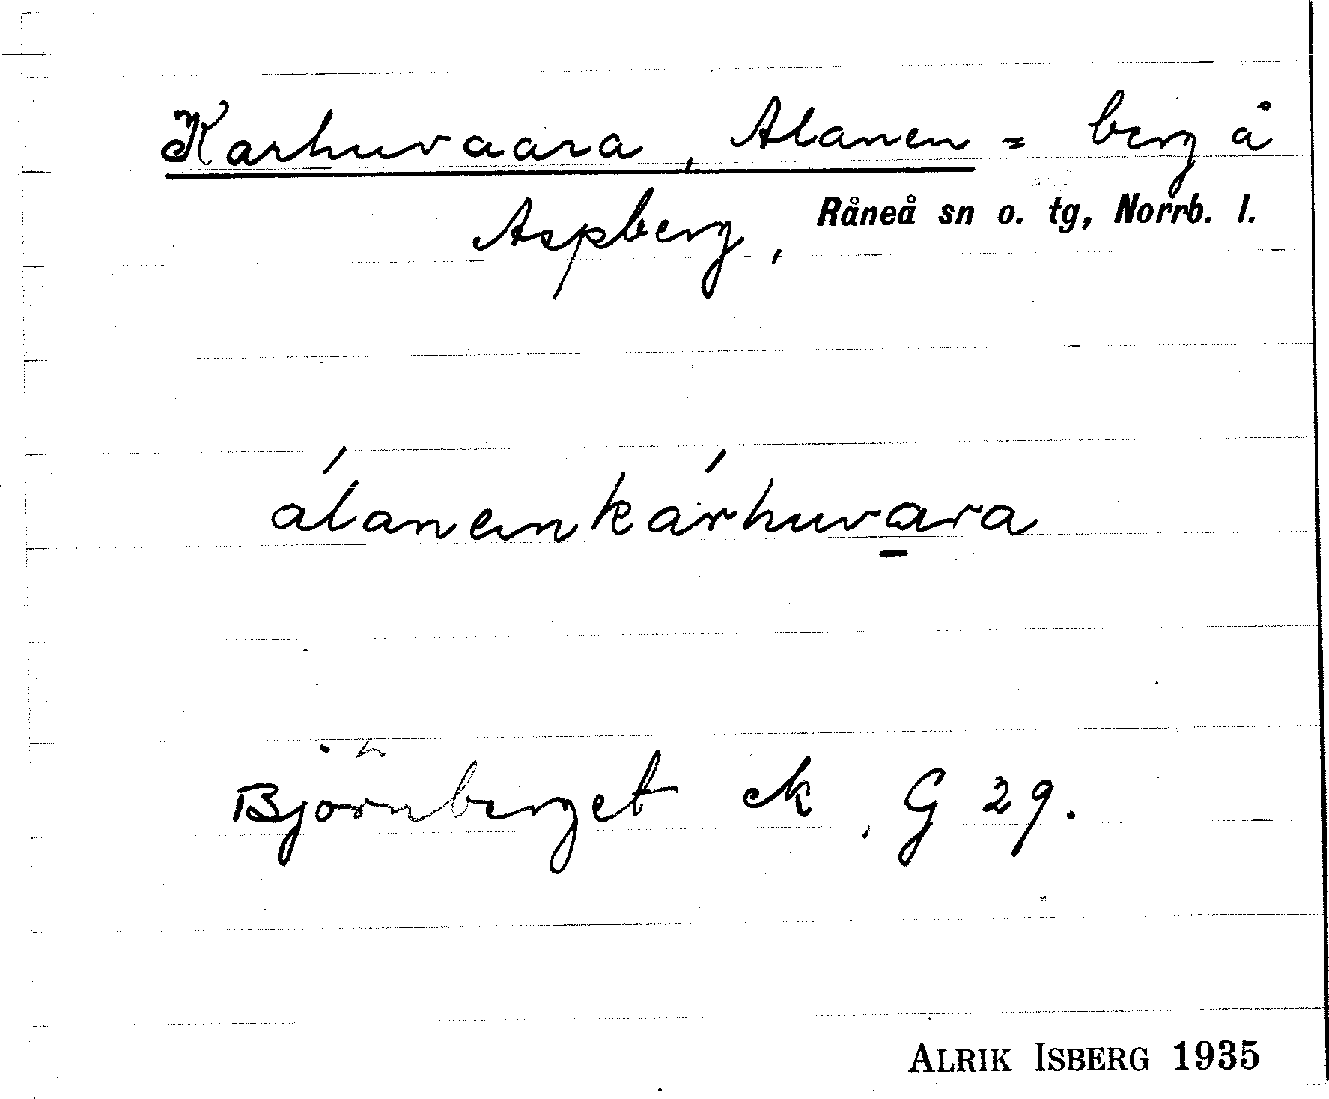 Karhuvaara, Alanen = berg å
Aspberg, Råneå sn o. tg, Norrb. l.
álanenkárhuvara
Björnberget ek, G 29.
ALRIK ISBERG 1935